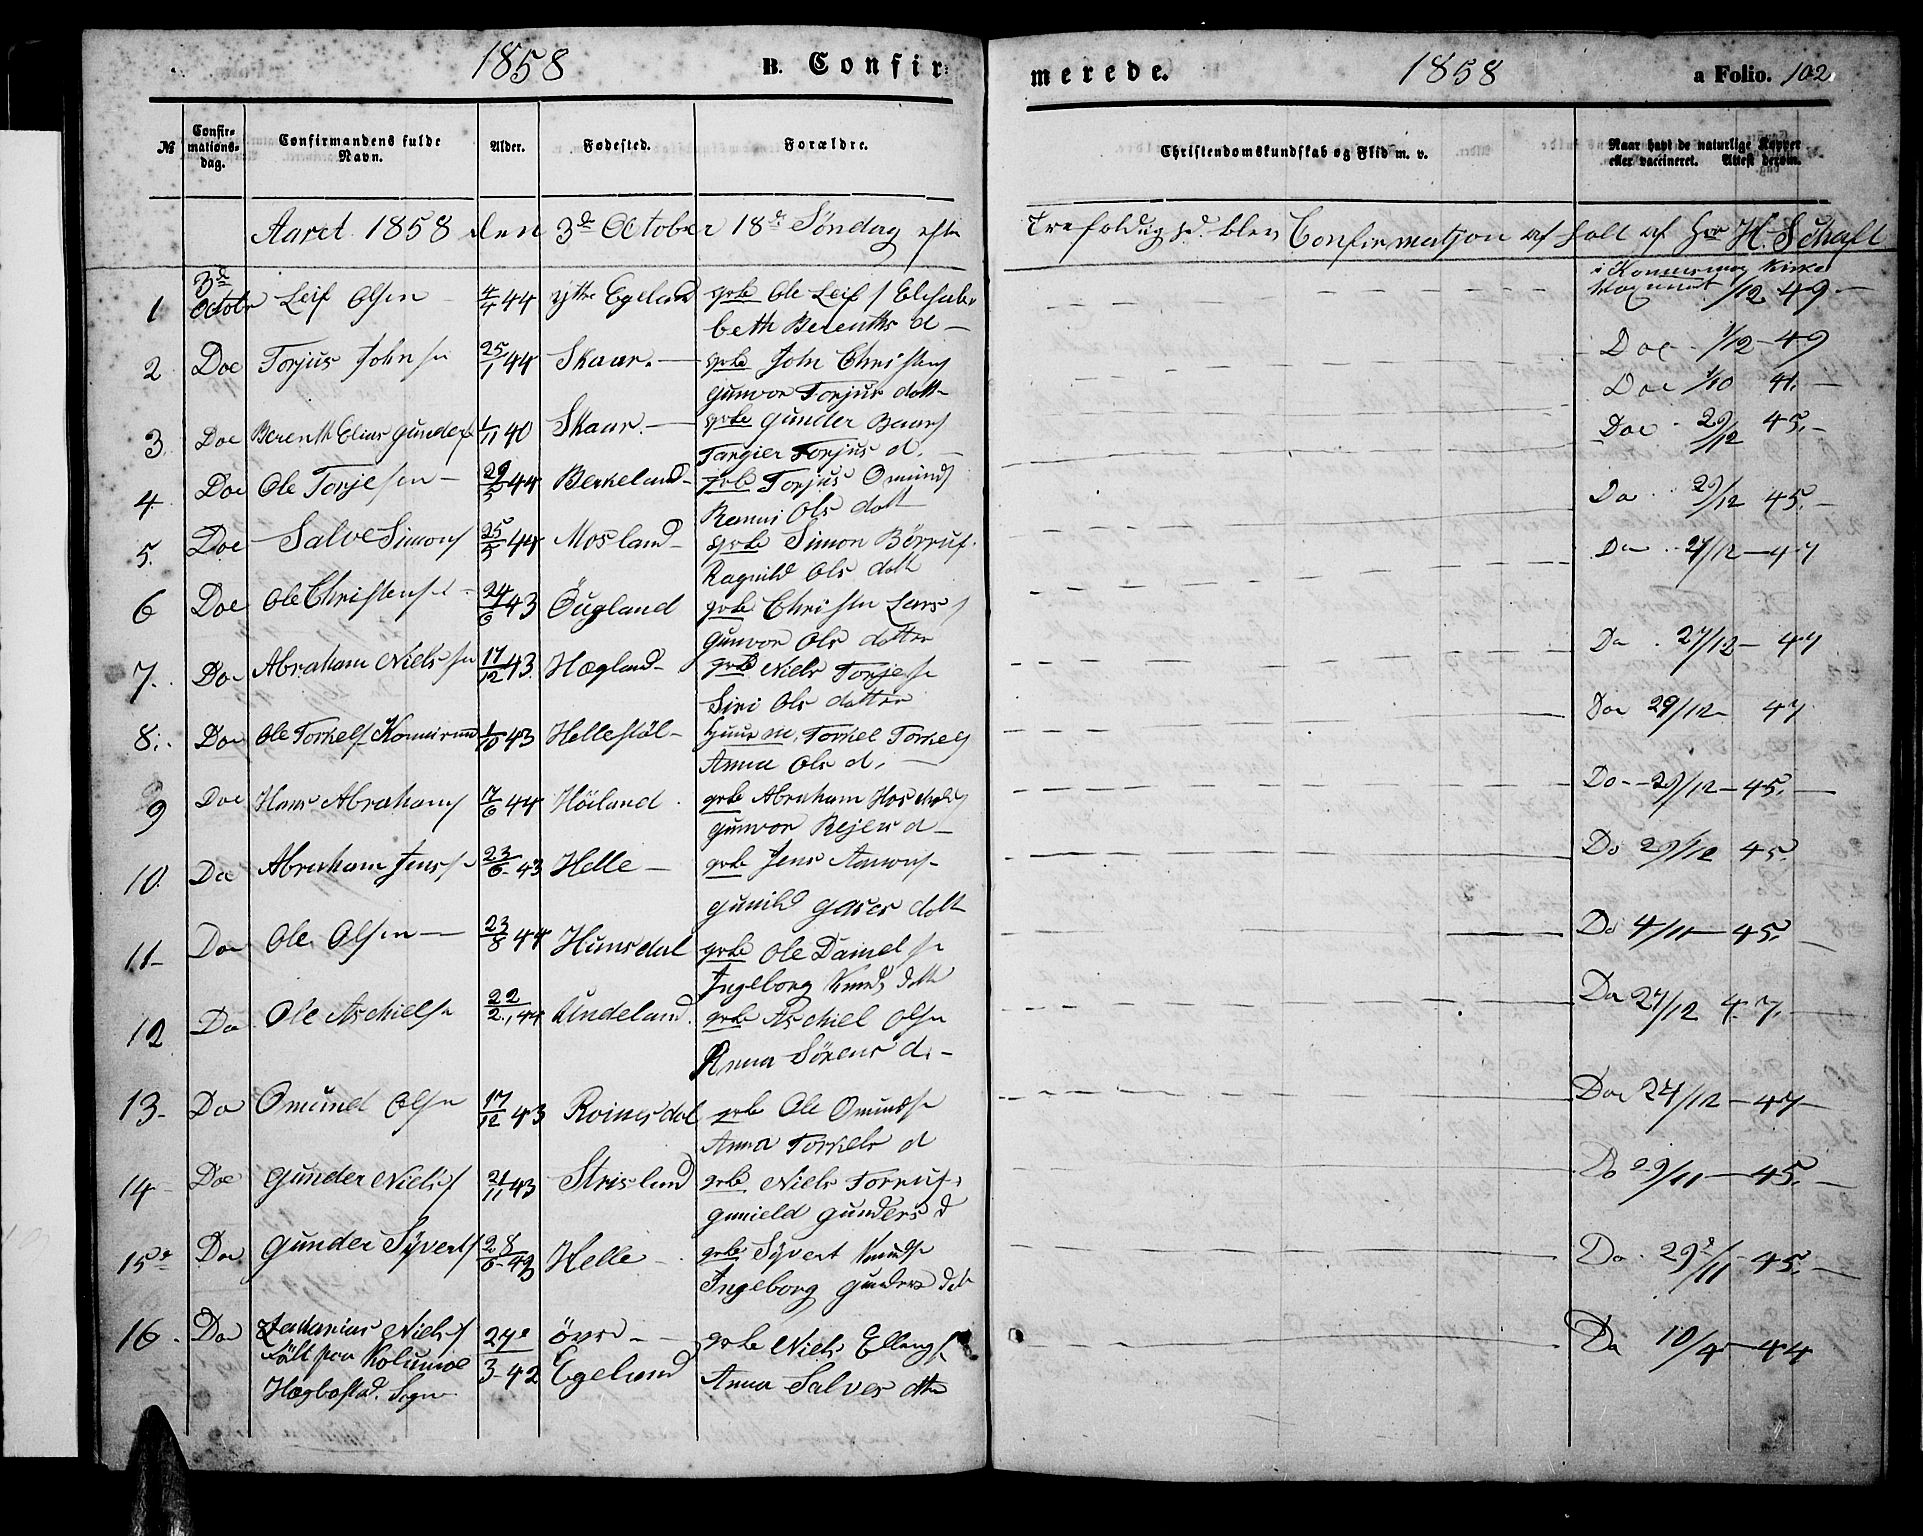 1858 B. Confir-
merede. 1858 a Folio. 102.
№ Confir-mations-dag. Confirmandens fulde Navn. Alder. Fødested. Forældre.
Christendomskundskab og Flid m. v. Naar havt de naturlige Kopper eller vaccineret. Attest derom.
Aaret 1858 den 3de October 18de Søndag efter
Trefoldighed. blev Confirmatjon af holt af Hrr H. Schalt
i Kirke
1 3de Octobr Leif Olsen 4/4 44 ytre Egeland grbr Ole Leifs Elisabeth Berenths d 1/12 49
2 Doe Torjus Johnsen 25/1 44 Skaar. grbr John Christens Gunvor Torjus datt Doe 1/12 49
Doe 1/10 41.
3 Doe Berenth Elias Gunders 1/11 40 Skaar. grbr Gunder Torjus d. Doe 29/12 45.
4. Doe Ole Torjesen 29/5 44 Berkeland grbr Torjus Omunds Ranni Ols datt Do 29/12 45.
5. Doe Salve Simons 25/5 44 Mosland grbr Simon Børruf. Ragnild Ols datt Do 27/12 47
6 Doe Ole Christensen 24/6 43 Öugland grbr Christen Lars Gunvor Ols datter Do 27/12 47
7. Doe Abraham Nielsen 17/12 43 Hægland grbr Niels Torjesen Siri Ols datter Doe 29/12 47
8. Doe Ole Torkels 1/10 43 Hellestøl Huusm. Torkel Torkels Anna Ols d.
9 Doe Hans Abrahams 7/6 44 Höiland grbr Abraham Gunvor Rejers d Do 29/12 45.
10. Do Abraham Jensen 23/6 43 Helle grbr Jens Aanons Gunild datt Do 29/12 45.
11 Do Ole Olsen 23/8 44 Hunsdal grbr Ole Danielsen Ingeborg Knuds datt Do 4/11 45.
12 Do Ole Aschielsen 22/2 44 Undeland grbr Aschiel Olsen Anna Sörens d. Do 27/12 47.
13 Do Omund Olsen 17/12 43 Roinesdal grbr Ole Omundsen Anna Torkels d Doe 24/12 47
14 Doe Gunder Niels 21/11 43 Strisland grbr Niels Torruf. Gunield Gunders d Do 29/11 45.
15de Do Gunder Syverts 28/6 43 Helle grbr Syvert Knudsen Ingeborg Gunders datt Do 29/11 45.
16. Do Zacharias Niels 27de/3 42 övre Egeland grbr Niels Ellengsen Anna Salves dtter Do 10/4 44
født paa
Hægbostad. Sogn